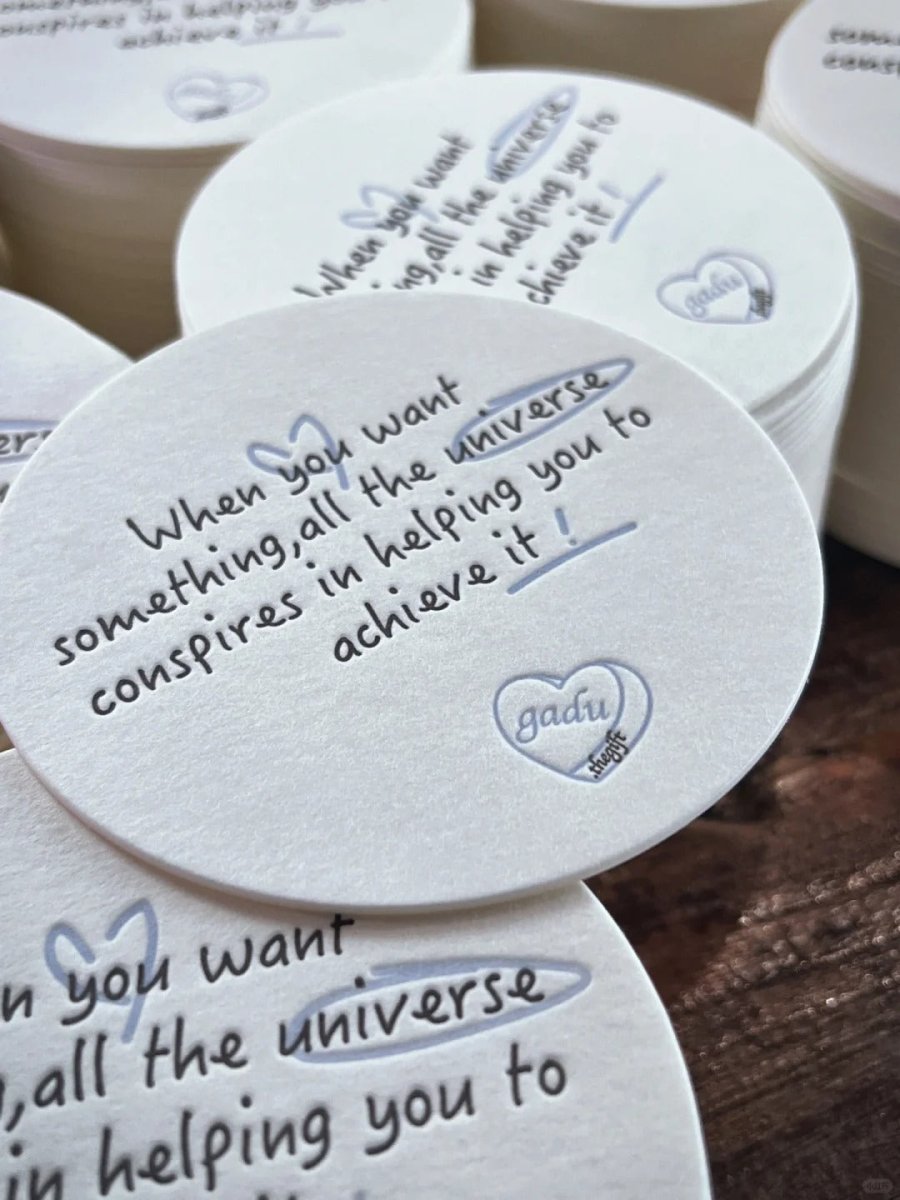 something
conspires in helping you to
achieve it !
When you want
ng,all the universe
in helping you to
chieve it !
gadu
.thegift
When you want
something,all the universe
conspires in helping you to
achieve it !
gadu
.thegift
n you want
,all the universe
in helping you to